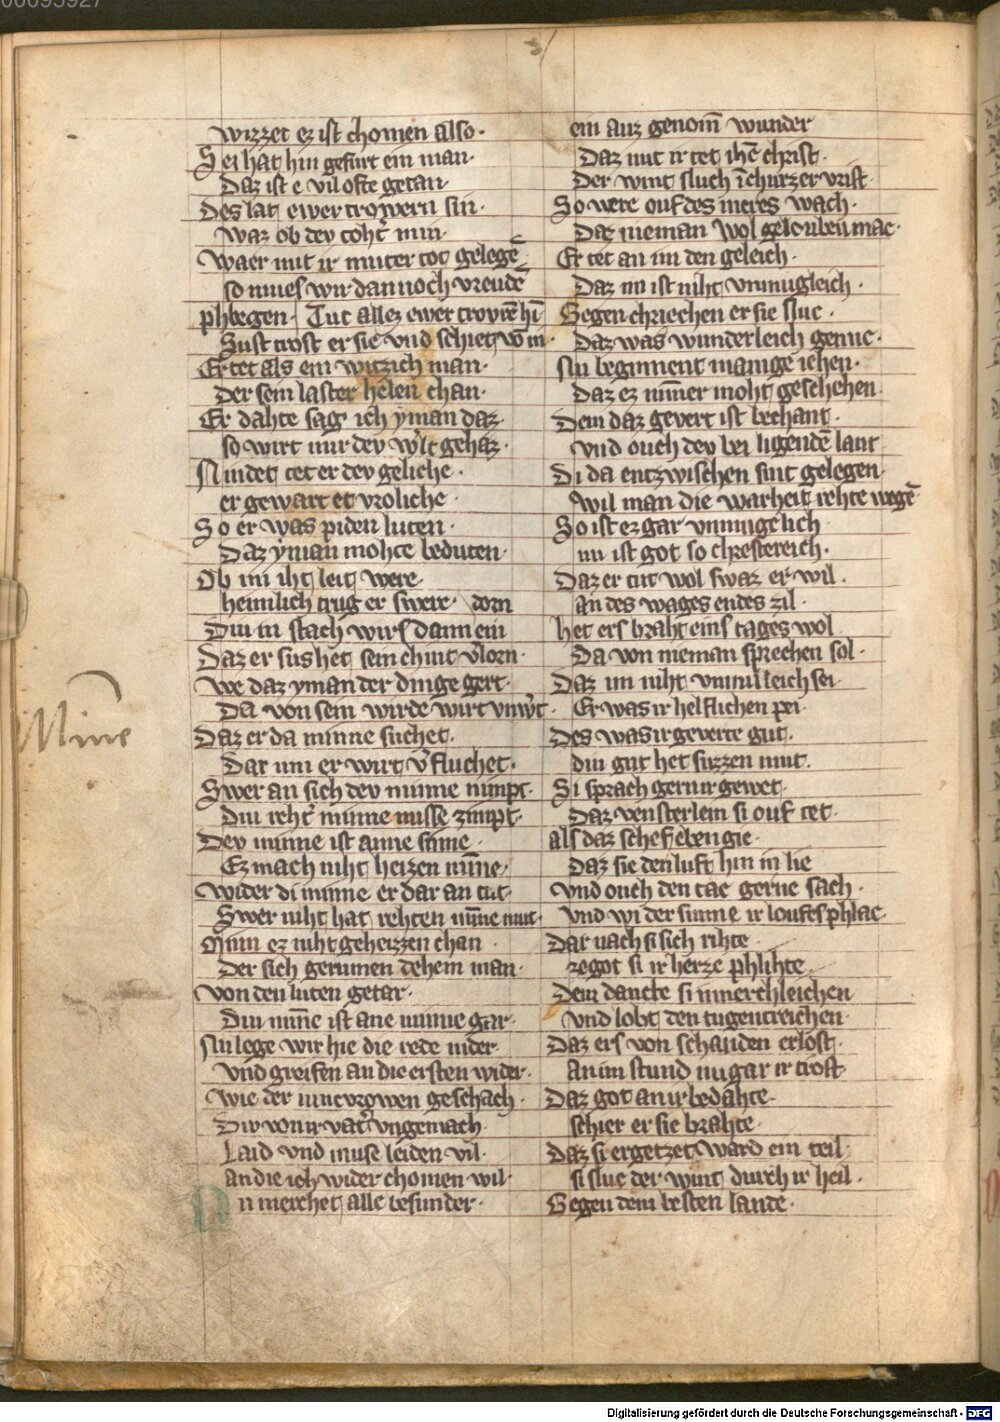 00095927
wizzet ez ist chomen also·
Sei hat hin gefurt ein man·
Daz ist e vil ofte getan·
Des lat ewer trowern sin·
waz ob dev toht̾ min·
waer mit ir muter tot gelegē
so mues wir dannoch vreudē
phlegen· Tut allez ewer trovrē hī
Sust trost er sie vnd schiet vō in·
Er tet als ein witzich man·
Der sein laster helen chan·
Er dahte sag ich yman daz·
so wirt mir dev w̾lt gehaz·
Nindet tet er dev geliche·
er gewart et vroliche·
So er was pi den luten·
Daz yman mohte beduten·
Ob im iht leit were·
heimlich trug er swere· dorn
Div in stach wirs dann ein
Daz er sus het sein chint v̾lorn·
We daz yman der dinge gert·
Da von sein wirde wirt vnw̾t·
Daz er da minne suchet·
Dar um er wirt v̾fluchet·
Swer an sich dev minne nimpt·
Diu reht̾ minne misse zimpt·
Dev minne ist anne sinne·
Ez mach niht heizen minne·
wider di minne er dar an tut·
Swer niht hat rehten minne mut·
Minn ez niht geheizzen chan·
Der sich gerumen dehein man·
von den luten getar·
Diu minne ist ane minne gar·
Nu lege wir hie die rede nider·
vnd greifen an die ersten wider·
wie der iuncvrowen geschach·
Div von ir vat̾ vngemach
Laid vnd muse leiden vil·
an die ich wider chomen wil·
Nu merchet alle besunder·
ein auz genom̄ wunder
Daz mit ir tet ihc̄ christ·
Der wint sluch ī churzer vrist·
So vere ouf des meres wach·
Daz nieman wol gelouben mac·
Er tet an im den geleich·
Daz im ist niht vnmugleich·
Gegen chriechen er sie sluc·
Daz was wunderleich genuc·
Nu beginnent manige iehen·
Daz ez nimmer moht geschehen·
Dem daz gevert ist bechant·
vnd ouch dev bei ligendē lant
Di da entzwischen sint gelegen·
wil man die warheit rehte wegē
So ist ez gar vnmugelich
nu ist got so chrestereich·
Daz er tut wol swaz er wil·
an des wages endes zil·
het ers braht eins tages wol
Da von nieman sprechen sol·
Daz im niht vnmuleich sei·
Er was ir helflichen pei·
Des was ir geverte gut·
diu gut het suzzen mut·
Si sprach gern ir gewet·
Daz vensterlein si ouf tet·
als daz schef eben gie·
Daz sie den luft hin in lie
vnd ouch den tac gerne sach·
vnd wi der sunne ir loufes phlac·
Dar nach si sich rihte·
ze got si ir herze phlihte·
Dem dancte si innerchleichen
vnd lobt den tugentreichen·
Daz ers von schanden erlost·
an im stund nu gar ir trost·
Daz got an ir bedahte·
schier er sie brahte·
Daz si ergetzet ward ein teil·
si sluc der wint durch ir heil·
Gegen dem besten lande·
Minne
Digitalisierung gefördert durch die Deutsche Forschungsgemeinschaft - DFG